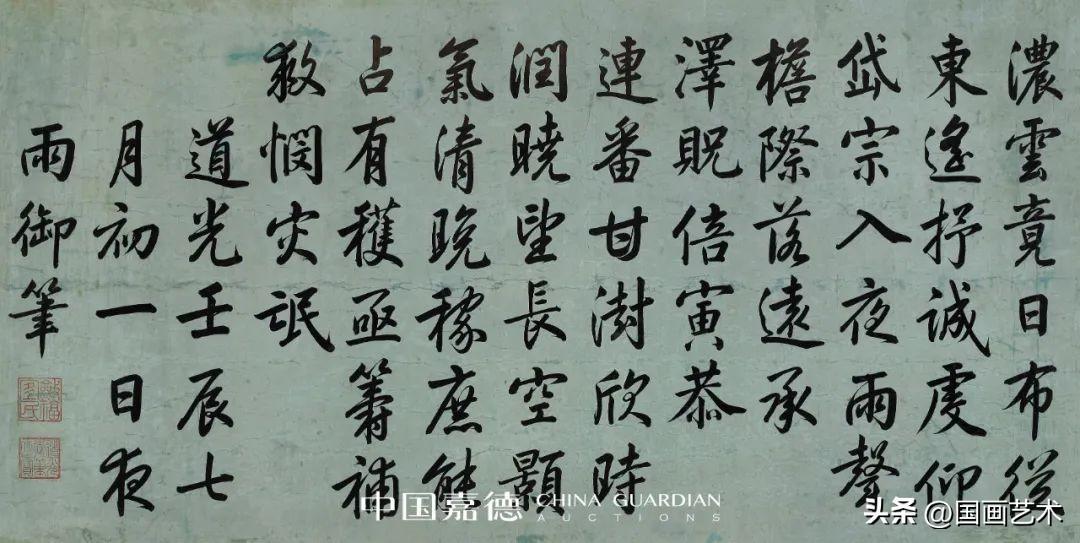 濃雲竟日布從
東遙抒誠虔仰
岱宗入夜雨聲
檐際落遠承
澤貺倍寅恭
連番甘澍欣時
潤曉望長空顥
氣清晚稼庶能
占有穫亟籌補
救憫灾氓
道光壬辰七
月初一日夜
雨御筆
中国嘉德 CHINA GUARDIAN
AUCTIONS
头条 @国画艺术